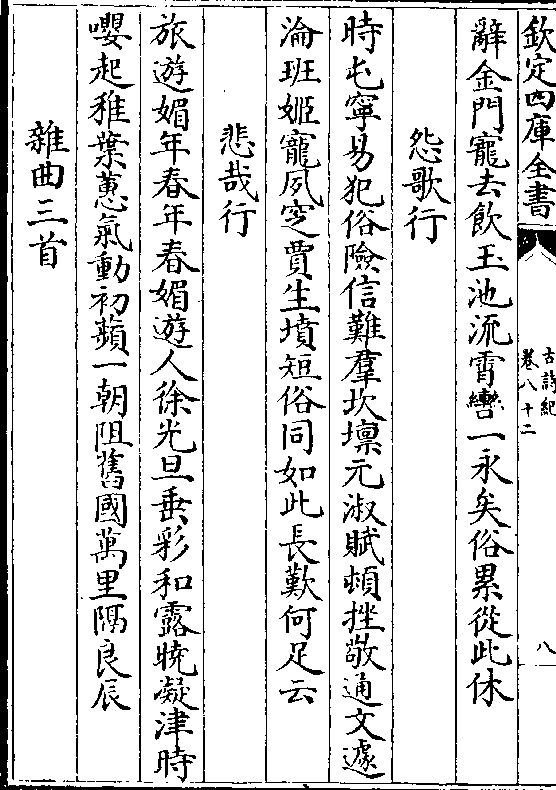 欽定四庫全書
古詩紀
卷八十二
八
辭金門寵去飲玉池流霄轡一永矣俗累從此休
怨歌行
時屯寧易犯俗險信難羣坎壈元淑賦頓挫敬通文遽
淪班姬寵夙窆賈生墳短俗同如此長歎何足云
悲哉行
旅遊媚年春年春媚遊人徐光旦垂彩和露曉凝津時
嚶起稚葉蕙氣動初蘋一朝阻舊國萬里隔良辰
雜曲三首